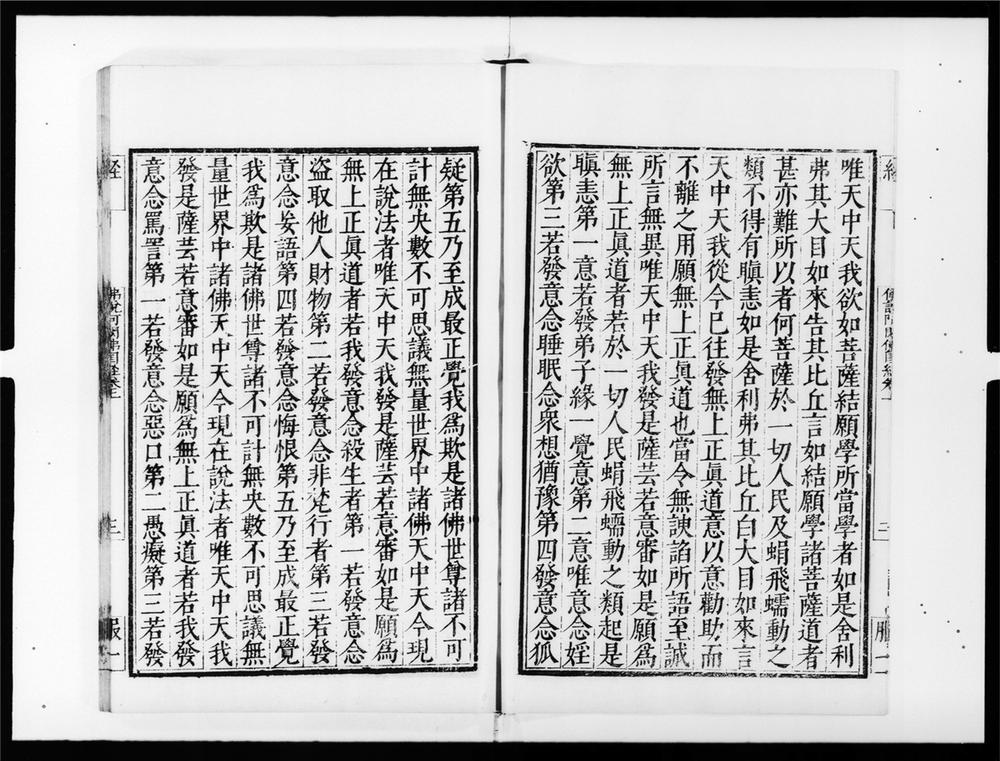 唯天中天我欲如菩薩結願學所當學者如是舍利
弗其大目如來告其比丘言如結願學諸菩薩道者
甚亦難所以者何菩薩於一切人民及蜎飛蠕動之
類不得有瞋恚如是舍利弗其比丘白大目如來言
天中天我從今已往發無上正真道意以意勸助而
不離之用願無上正真道也當令無諛諂所語至誠
所言無異唯天中天我發是薩芸若意審如是願爲
無上正眞道者若於一切人民蜎飛蠕動之類起是
瞋恚第一意若發弟子緣一覺意第二意唯意念婬
欲第三若發意念睡眠念衆想猶豫第四發意念狐
疑第五乃至成最正覺我爲欺是諸佛世尊諸不可
計無央數不可思議無量世界中諸佛天中天今現
在說法者唯天中天我發是薩芸若意審如是願爲
無上正眞道者若我發意念殺生者第一若發意念
盜取他人財物第二若發意念非梵行者第三若發
意念妄語第四若發意念悔恨第五乃至成最正覺
我爲欺是諸佛世尊諸不可計無央數不可思議無
量世界中諸佛天中天今現在說法者唯天中天我
發是薩芸若意審如是願爲無上正眞道者若我發
意念罵詈第一若發意念惡口第二愚癡第三若發
三